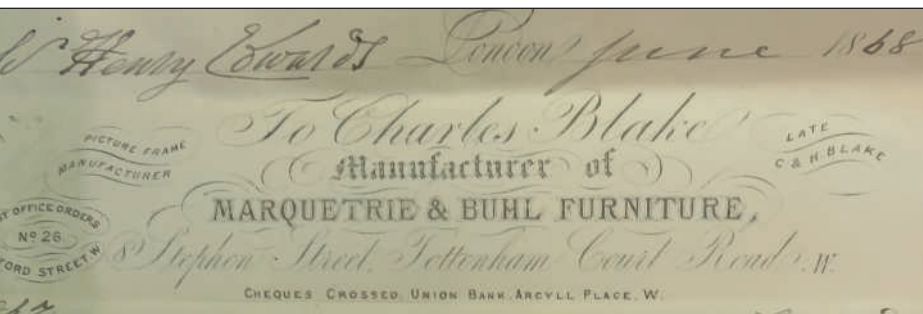 Henry Edwards London June 1868
To Charles Blake
PICTURE FRAME
MANUFACTURER
LATE
C & H BLAKE
Manufacturer of
MARQUETRIE & BUHL FURNITURE,
OFFICE ORDERS
No 26
FORD STREET W
8 Stephen Street, Tottenham Court Road, W.
CHEQUES CROSSED, UNION BANK, ARGYLL PLACE, W.